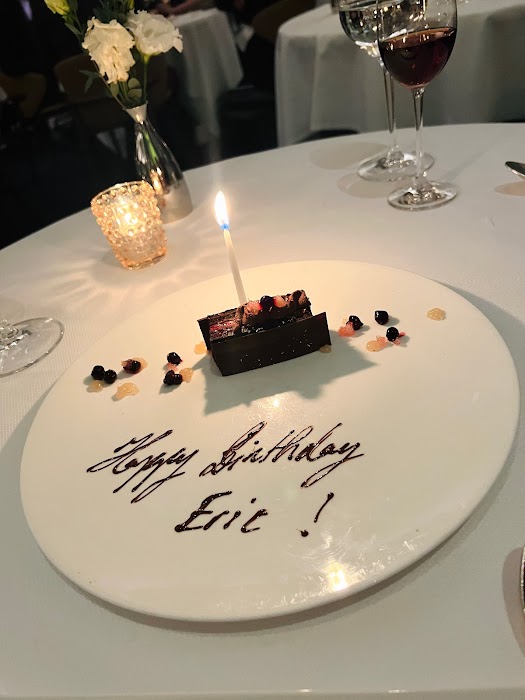 Happy Birthday
Eric !